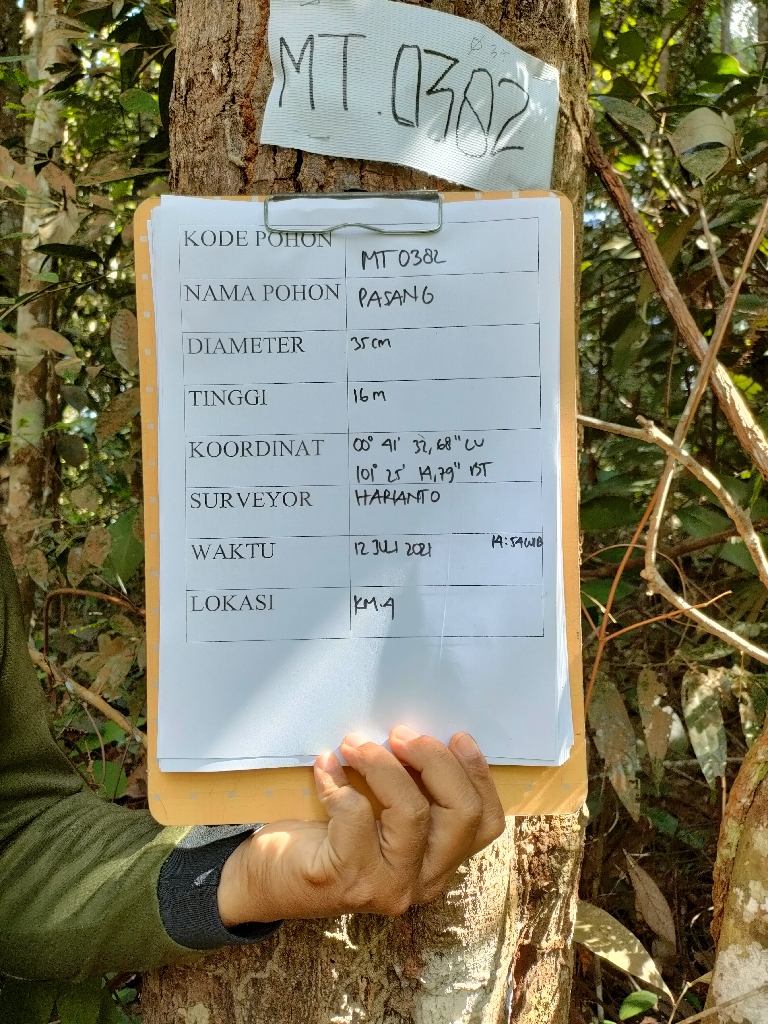 MT.0382
KODE POHON MT0382
NAMA POHON PASANG
DIAMETER 35 cm
TINGGI 16 m
KOORDINAT 00° 41' 32,68" LU
101° 25' 14,79" BT
SURVEYOR HARIANTO
WAKTU 12 JULI 2021 14:54 WIB
LOKASI KM.4